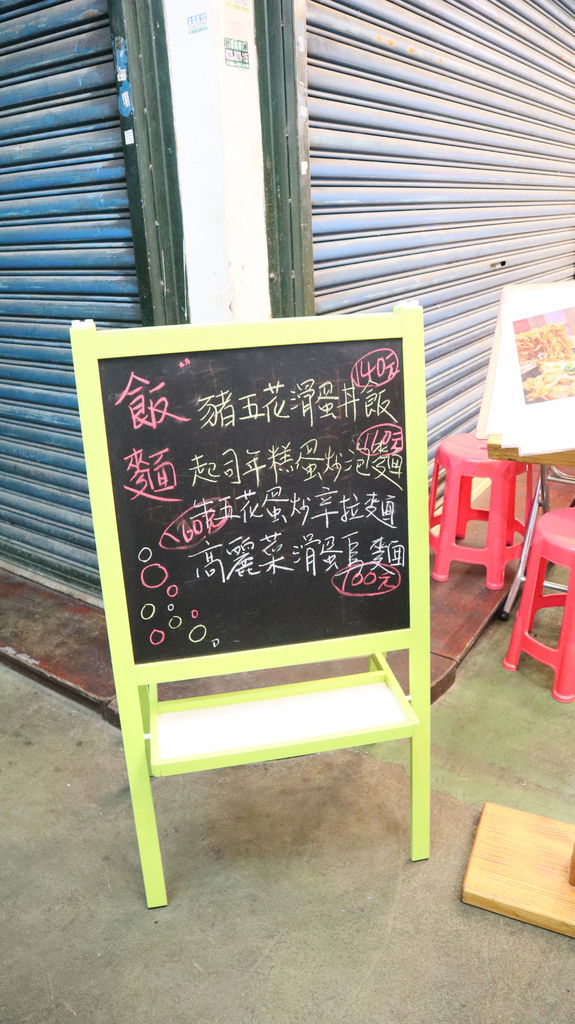 飯 豬五花滑蛋丼飯 140元
麵 起司年糕蛋炒泡麵
五花蛋炒辛拉麵
高麗菜滑蛋烏麵 100元